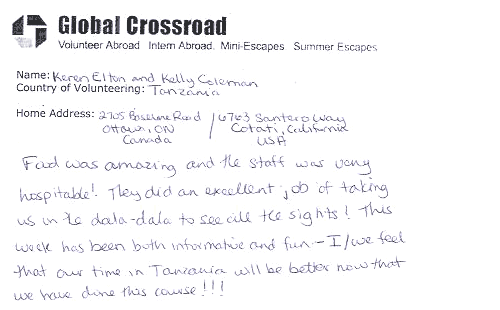 Global Crossroad
Volunteer Abroad Intern Abroad. Mini-Escapes Summer Escapes
Name: Keren Elton and Kelly Coleman
Country of Volunteering: Tanzania
Home Address: 2705 Baseline Road / 6763 Santero Way
Ottawa, ON Cotati, California
Canada USA
Food was amazing and the staff was very
hospitable! They did an excellent job of taking
us in the dala-dala to see all the sights! This
week has been both informative and fun - I/we feel
that our time in Tanzania will be better now that
we have done this course!!!